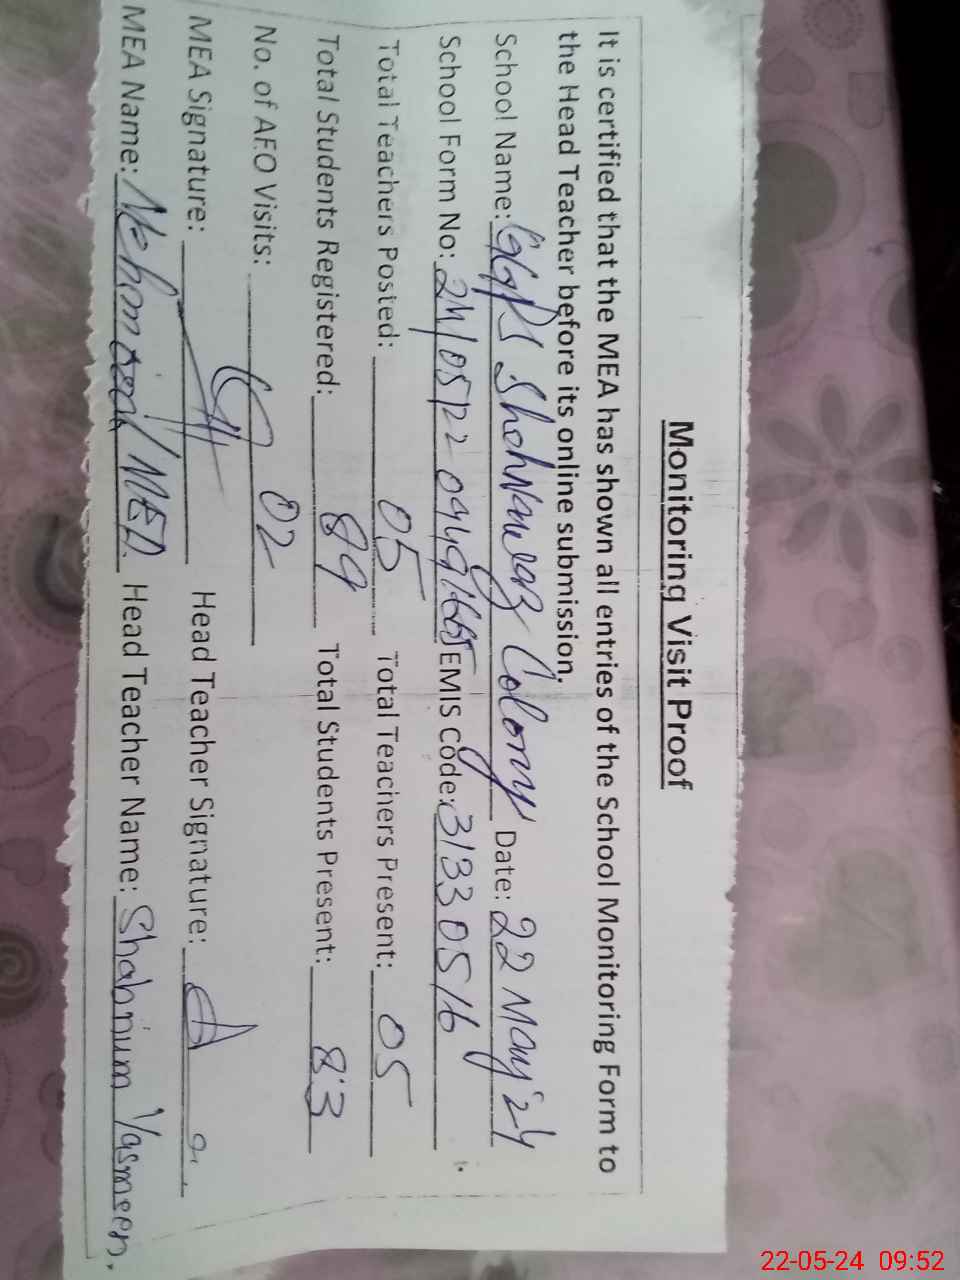 Monitoring Visit Proof
It is certified that the MEA has shown all entries of the School Monitoring Form to
the Head Teacher before its online submission.
School Name: GGPS Shahnawaz Colony Date: 22 May '24
School Form No: 24/05/22 EMIS Code: 31330516
Total Teachers Posted: 05 Total Teachers Present: 05
Total Students Registered: 89 Total Students Present: 83
No. of AEO Visits: 02
MEA Signature: Head Teacher Signature:
MEA Name: Head Teacher Name: Shabnum Yasmeen.
22-05-24 09:52